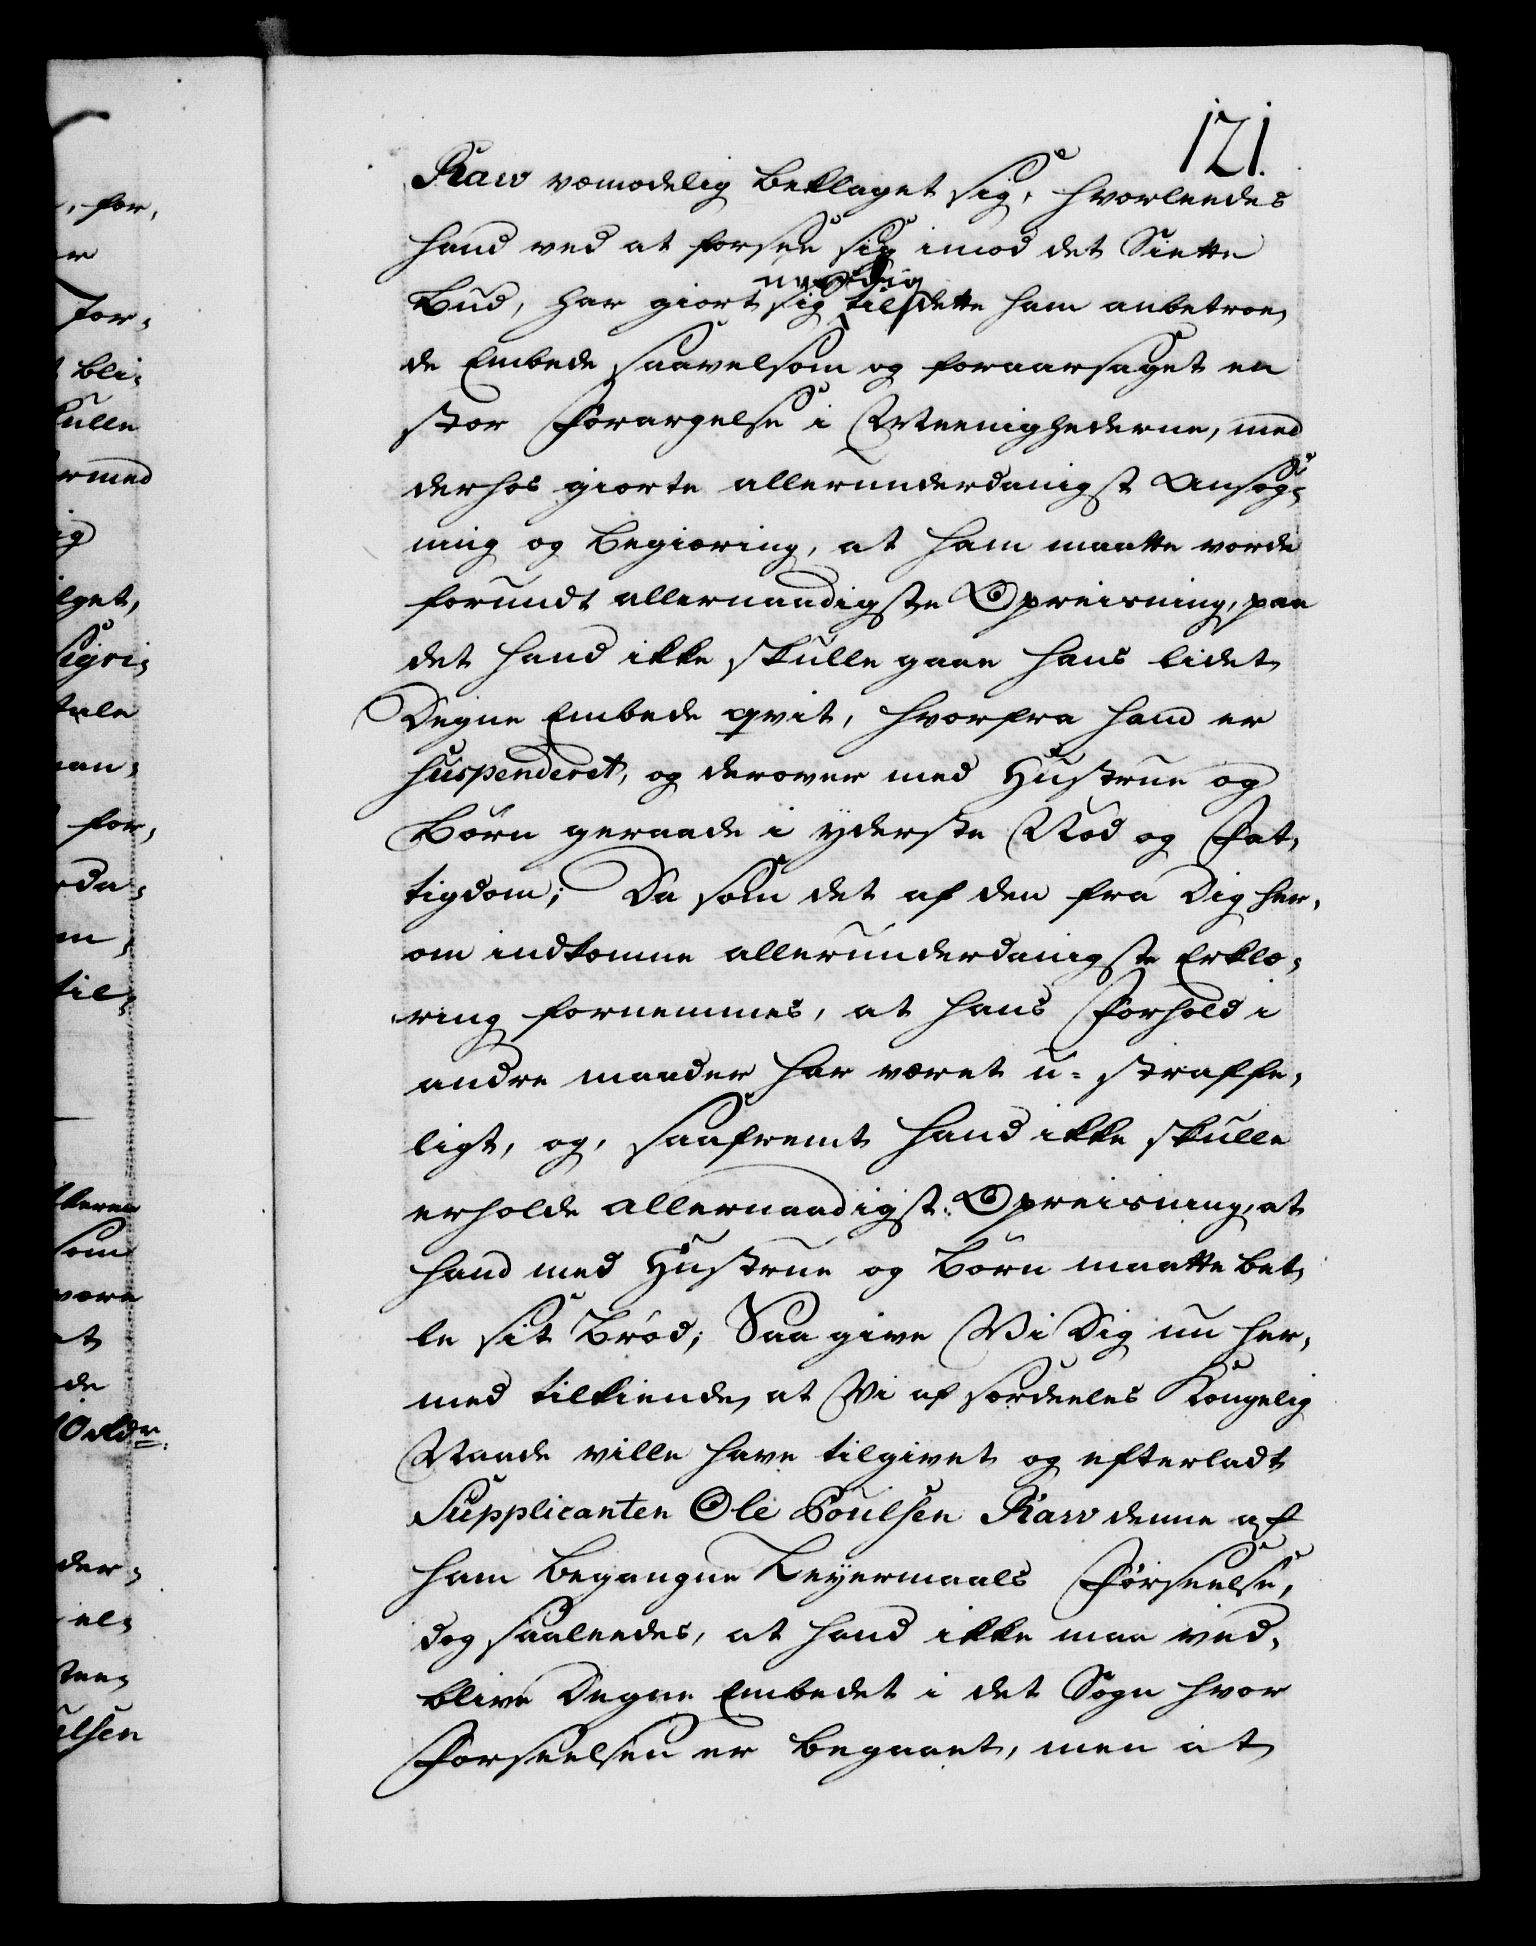 121.
Raw vemodelig beklaget sig, hvorleedes
hand ved at forsee sig imod det Siette
uværdig
Bud, har giort sig til dette ham anbetroe,
de Embede saavelsom og foraarsaget en
stor Forargelse i Meenighederne, med
derhos giorte allerunderdanigst Ansøg-
ning og begiæring, at ham maatte vorde
forundt allernaadigste Opreisning, paa
det hand ikke skulle gaae hans lidet
Degne Embede qvit, hvorfra hand er
suspenderet, og derover med Hustrue og
Børn geraade i yderste Nød og Fat,
tigdom; Da som det af den fra Dig her,
om indkomne allerunderdanigste Erklæ-
ring fornemmes, at hans Forhold i
andre maader har været u-straffe,
ligt, og, saafremt hand ikke skulle
erholde allernaadigst Opreisning, at
hand med Hustrue og Børn maatte bet,
le sit Brød; Saa give Vi Dig nu her,
med tilkiende, at Vi af særdeeles Kongelig
Naade ville have tilgivet og efterladt
Supplicanten Ole Poulsen Raw denne af
ham begangne Leyermaals Forseelse,
dog saaleedes, at hand ikke maa ved,
blive Degne Embedet i det Sogn hvor
Forseelsen er begaaet, men at